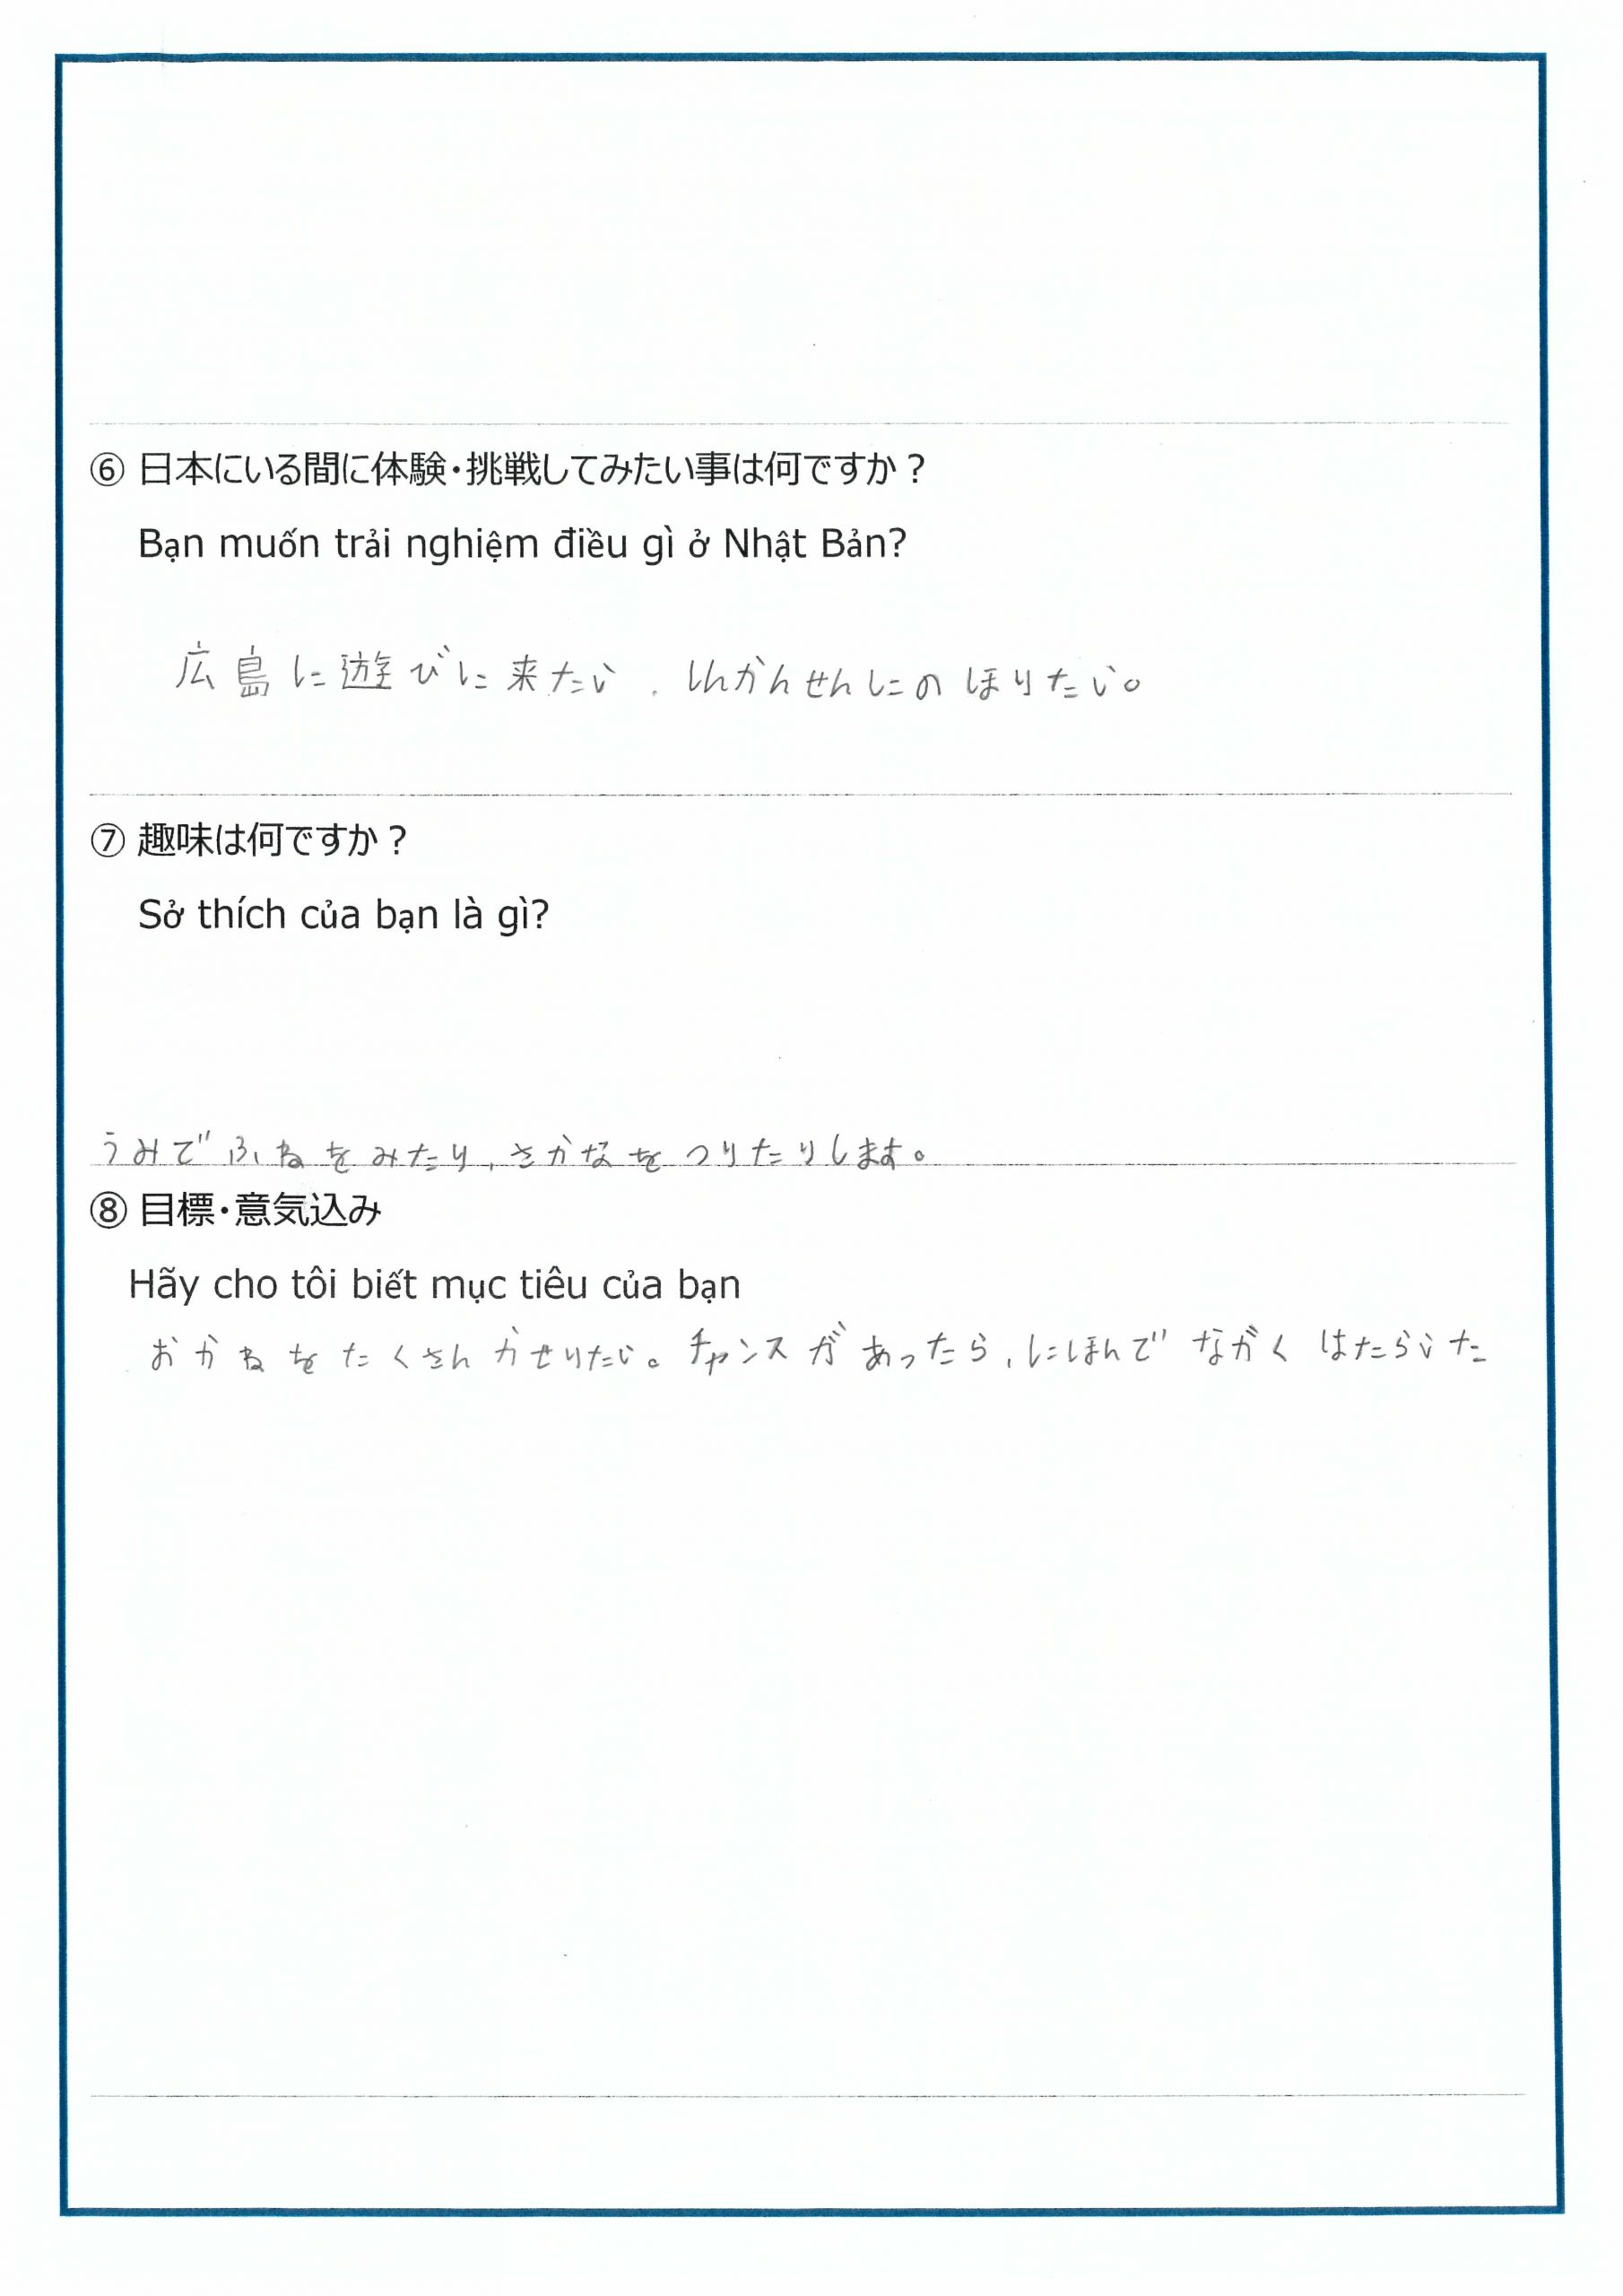 ⑥ 日本にいる間に体験・挑戦してみたい事は何ですか？
Bạn muốn trải nghiệm điều gì ở Nhật Bản?
広島に遊びに来たい、しんかんせんにのほりたい。
⑦ 趣味は何ですか？
Sở thích của bạn là gì?
うみでふねをみたり、さかなをつりたりします。
⑧ 目標・意気込み
Hãy cho tôi biết mục tiêu của bạn
おかねをたくさんかせりたい。チャンスがあったら、にほんでながくはたらいた